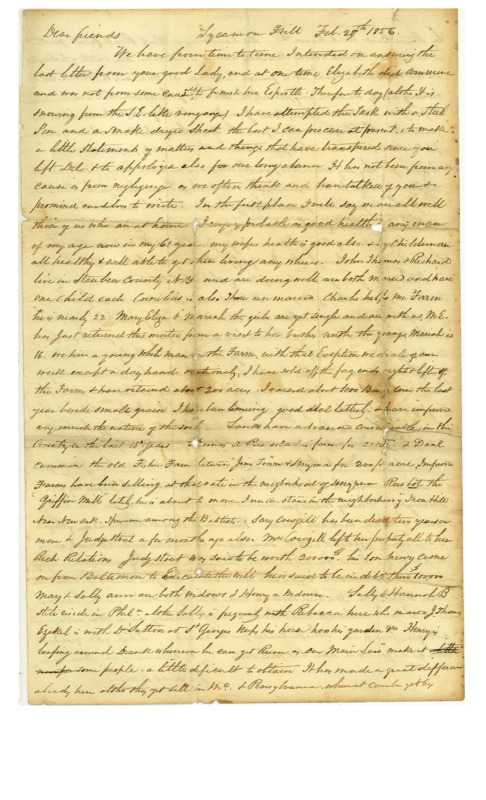 Dear friends Sycamore Hill Feb. 29th 1856.
We have from time to time Intended on answering the
last letter from your good Lady, and at one time Elizabeth did commence
and was not from some cause to finish her Epistle Therefor to day (altho It is
snowing from the S.E. like vengance) I have attempted the Task with a steel
Pen and a Smoke dryed Sheet the best I can procure at present, to make
a little statement of matters and things that have transpired since you
left Del. & to appologise also for our long absence It has not been from any
cause or from negligence as we often think and have talked of you &
promised ourselves to write. In the first place I will say we are all well
those of us who are at home I enjoy probable as good health as any man
of my age now in my 61 year my wifes health is good also & my Children are
all healthy & well able to get their living any where. John Thomas & Richard
live in Steuben County N.Y and are doing well are both married and have
one Child each Cornelius is also there un married Charles helps me Farm
he is nearly 22. Mary Eliza & Mariah the girls are yet single and are with us M.E.
has Just returned this winter from a visit to her brothers north the younger Mariah is
16. we have a young White man on the Farm, with that Exception we do all our
work except a day hand occationaly, I have sold off the fag ends right & left of
the Farm & have retained about 200 acres I raised about 1000 Bus. Corn the last
year beside small grain I have been Limeing good deal lately, which improves
very much the nature of the soil Lands have advanced considerable in this
County in the last 15 years Rees sold his farm for & Danl
Cummins the old Fisher Farm between Jims Town & Smyrna for 200$ acre, Improved
Farms have been selling at that rate in the neighborhood of Smyrna Rees bot the
Griffin Mill lately, he is about to move I understand in the neighboring Iron Hill
Near Newark. among the Baptist. Sary Cowgill has been dead two years or
more & Judy Stout a few months ago also. Mrs Cowgill left her property all to her
Rich Relations Judy Stout was said to be worth 20000$ his son Henry came
on from Baltimore to Execute the Will he is said to be in debt 10000
Mary & Sally ann are both Widows & Henry a Widower. Sally & Hannah B
Still reside in Phila altho Sally is frequently with Rebecca here who married J Thomas
Ezekiel is with Dr Sutton at St Georges keeps his horse hoes his garden &c Henry is
loafing around Drunk whenever he can get Rum as Our Main Law makes it
for some people a little difficult to obtain It has made a great difference
already here altho they get still in Md. & Pensylvania where it can be got by